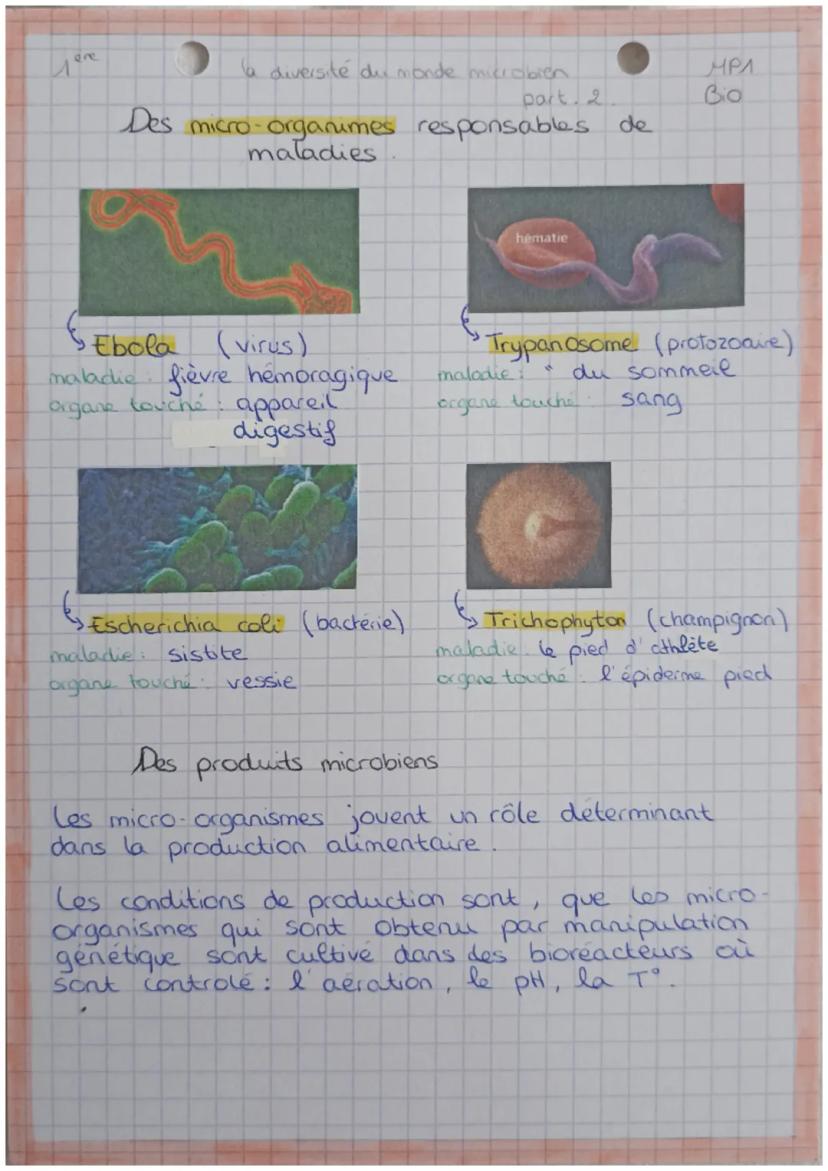 1ère
la diversité du monde microbien
part. 2
MPA
Bio
Des micro-organimes responsables de
maladies.
hématie
Ebola (virus)
maladie : fièvre hémoragique
organe touché : appareil
digestif
Trypanosome (protozoaire)
maladie : " du sommeil
organe touché : sang
Escherichia coli (bactérie)
maladie : sistite
organe touché : vessie
Trichophyton (champignon)
maladie : le pied d'athlète
organe touché : l'épiderme pied
Des produits microbiens
Les micro-organismes jouent un rôle déterminant
dans la production alimentaire.
Les conditions de production sont, que les micro-
organismes qui sont obtenu par manipulation
génétique sont cultivé dans des bioréacteurs où
sont controlé : l'aération, le pH, la T°.